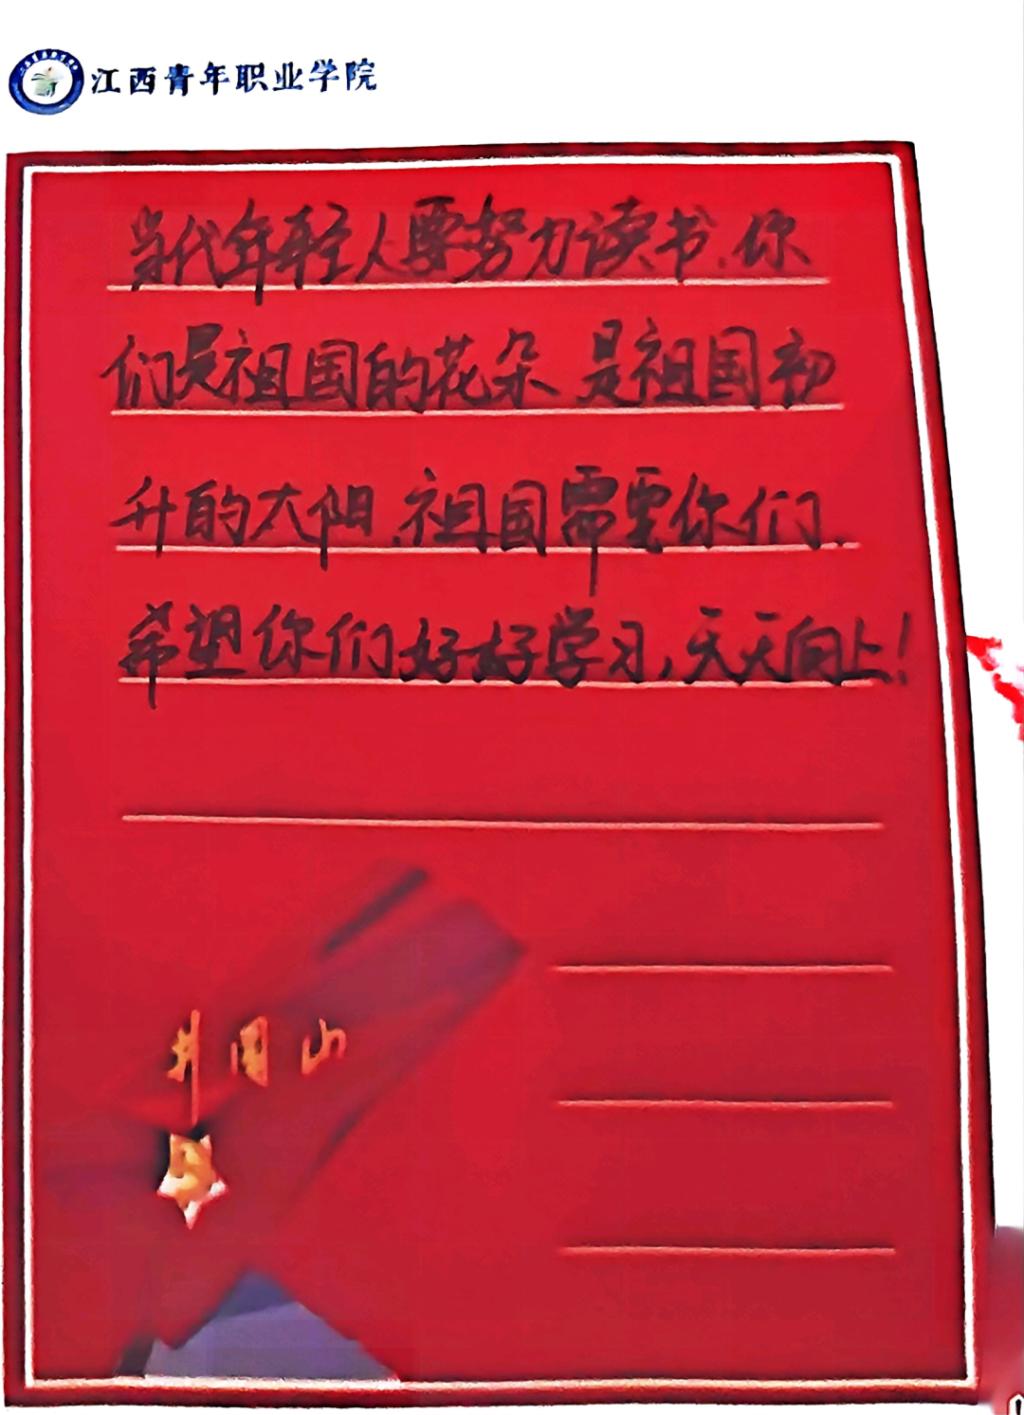 江西青年职业学院
当代年轻人要努力读书.你
们是祖国的花朵 是祖国初
升的太阳.祖国需要你们.
希望你们好好学习,天天向上!
井冈山